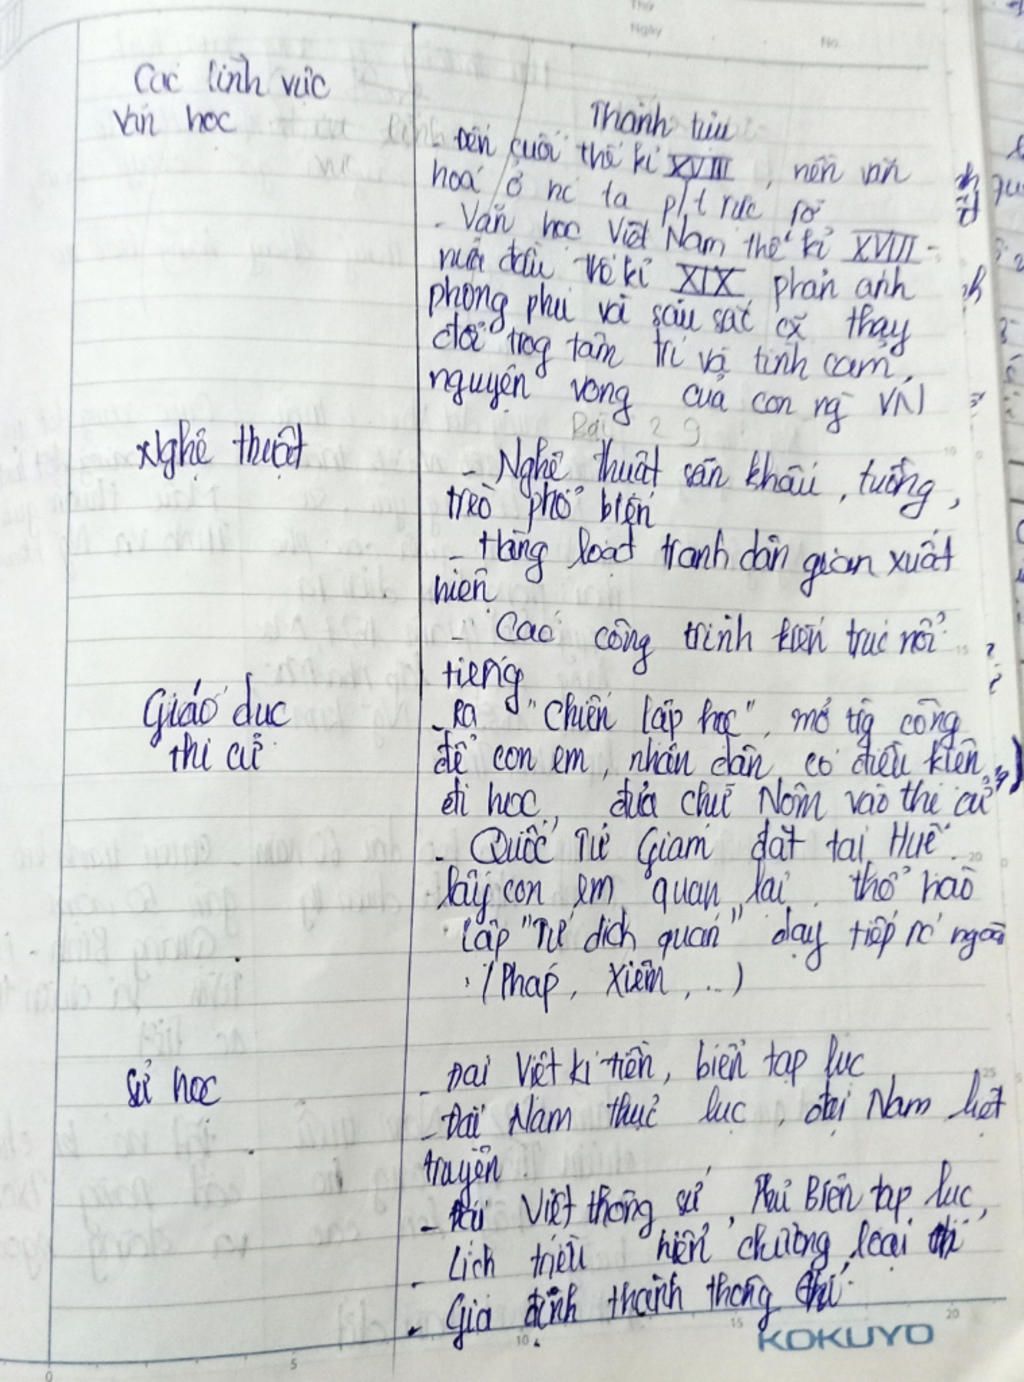 Các lĩnh vực
Thành tựu
Văn học
- Đến cuối thế kỉ XVIII, nền văn
hoá ở nc ta p/t rực rỡ
- Văn học Việt Nam thế kỉ XVIII -
nửa đầu thế kỉ XIX phản ánh
phong phú và sâu sắc cx thay
đổi trog tâm trí và tình cảm,
nguyện vọng của con ng VN
Bài 29
Nghệ thuật
- Nghệ thuật sân khấu, tuồng,
trèo phổ biến
- Hàng loạt tranh dân gian xuất
hiện
- Các công trình kiến trúc nổi
tiếng
Giáo dục
thi cử
- Ra "Chiến lập học", mở tig công
để con em, nhân dân có điều kiện
đi học, đưa chữ Nôm vào thi cử
- Quốc Tử Giám đặt tại Huế.
lấy con em quan lại, thổ hào
lập "Tứ dịch quán" dạy tiếp nc ngoài
(Pháp, Xiêm, ..)
Sử học
- Đại Việt kí tiền, biên tạp lục
- Đại Nam thực lục, đại Nam liệt
truyện
- Đại Việt thông sử, Phủ Biên tạp lục,
- Lịch triều hiến chương loại chí
- Gia định thành thông chí
KOKUYO